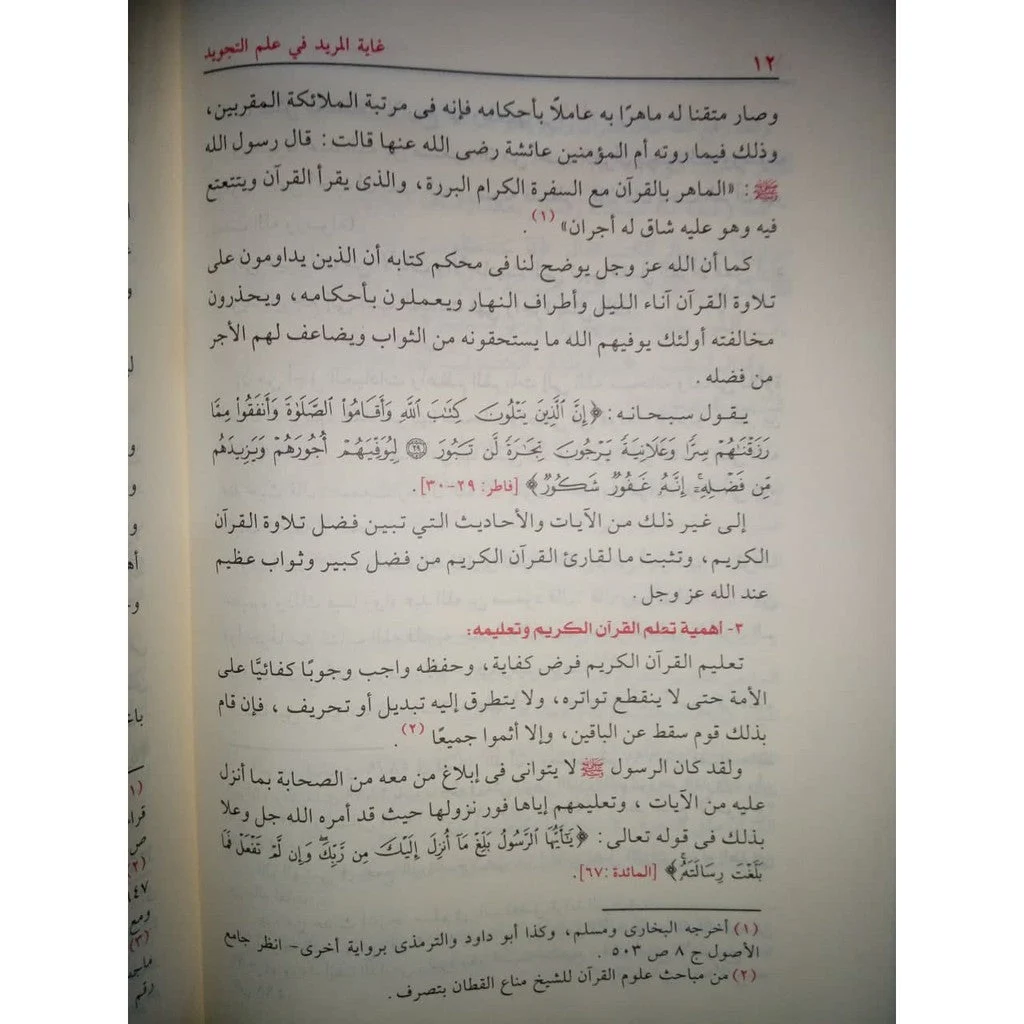 ١٢
غاية المريد في علم التجويد
وصار متقنا له ماهرًا به عاملاً بأحكامه فإنه فى مرتبة الملائكة المقربين،
وذلك فيما روته أم المؤمنين عائشة رضى الله عنها قالت: قال رسول الله
ﷺ: «الماهر بالقرآن مع السفرة الكرام البررة، والذى يقرأ القرآن ويتتعتع
فيه وهو عليه شاق له أجران» (١).
كما أن الله عز وجل يوضح لنا فى محكم كتابه أن الذين يداومون على
تلاوة القرآن آناء الليل وأطراف النهار ويعملون بأحكامه، ويحذرون
مخالفته أولئك يوفيهم الله ما يستحقونه من الثواب ويضاعف لهم الأجر
من فضله.
يقول سبحانه: ﴿إِنَّ الَّذِينَ يَتْلُونَ كِتَابَ اللَّهِ وَأَقَامُوا الصَّلَوٰةَ وَأَنفَقُوا مِمَّا
رَزَقْنَٰهُمْ سِرًّا وَعَلَانِيَةً يَرْجُونَ تِجَٰرَةً لَّن تَبُورَ ٢٩ لِيُوَفِّيَهُمْ أُجُورَهُمْ وَيَزِيدَهُم
مِّن فَضْلِهِۦٓ إِنَّهُۥ غَفُورٌ شَكُورٌ﴾ [فاطر: ٢٩-٣٠].
إلى غير ذلك من الآيات والأحاديث التي تبين فضل تلاوة القرآن
الكريم، وتثبت ما لقارئ القرآن الكريم من فضل كبير وثواب عظيم
عند الله عز وجل.
٣- أهمية تعلم القرآن الكريم وتعليمه:
تعليم القرآن الكريم فرض كفاية، وحفظه واجب وجوبًا كفائيًا على
الأمة حتى لا ينقطع تواتره، ولا يتطرق إليه تبديل أو تحريف، فإن قام
بذلك قوم سقط عن الباقين، وإلا أثموا جميعًا (٢).
ولقد كان الرسول ﷺ لا يتوانى فى إبلاغ من معه من الصحابة بما أنزل
عليه من الآيات، وتعليمهم إياها فور نزولها حيث قد أمره الله جل وعلا
بذلك فى قوله تعالى: ﴿يَٰٓأَيُّهَا الرَّسُولُ بَلِّغْ مَآ أُنزِلَ إِلَيْكَ مِن رَّبِّكَ وَإِن لَّمْ تَفْعَلْ فَمَا
بَلَّغْتَ رِسَالَتَهُۥ﴾ [المائدة: ٦٧].
(١) أخرجه البخارى ومسلم، وكذا أبو داود والترمذى برواية أخرى- انظر جامع
الأصول ج ٨ ص ٥٠٣.
(٢) من مباحث علوم القرآن للشيخ مناع القطان بتصرف.